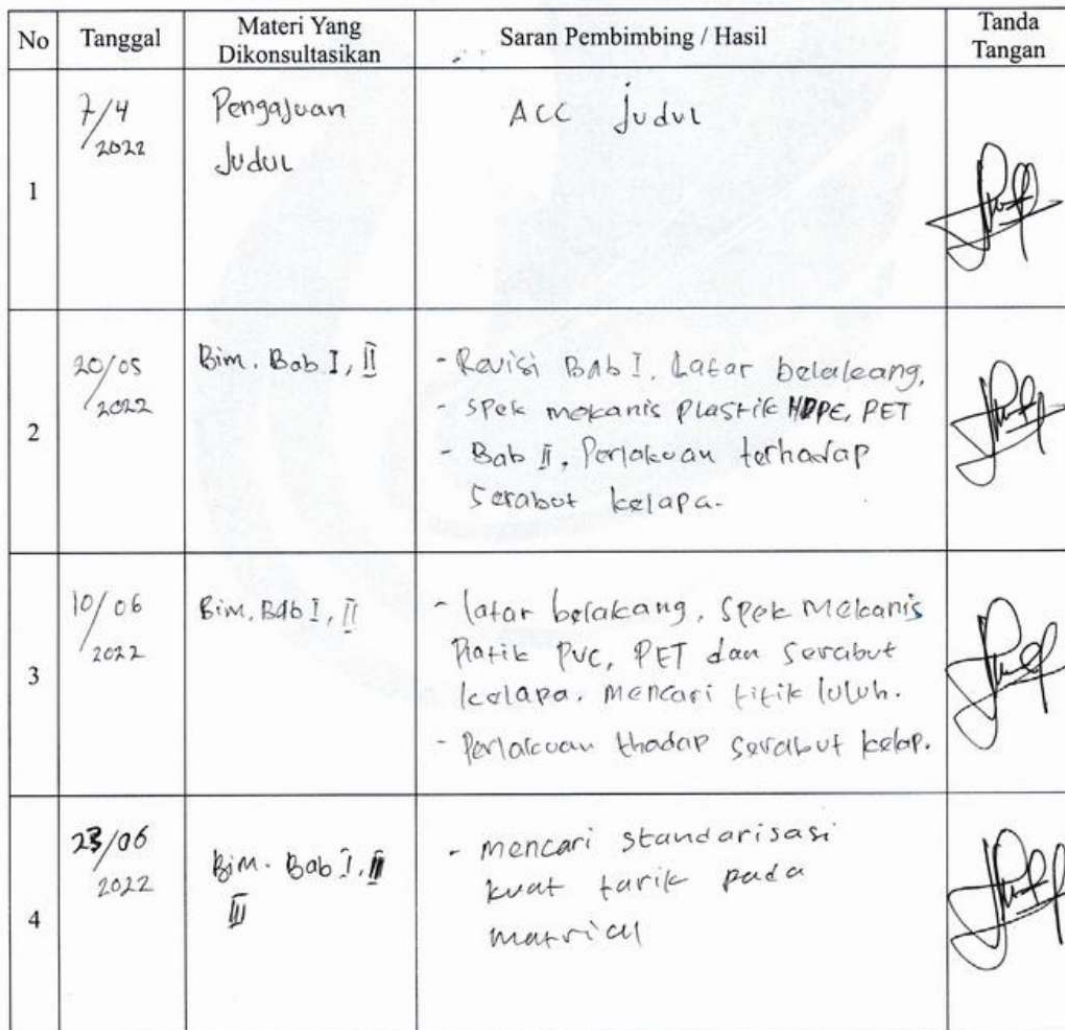 No Tanggal Materi Yang Dikonsultasikan Saran Pembimbing / Hasil Tanda Tangan
1
7/4
2022
Pengajuan
Judul
ACC judul
2
20/05
2022
Bim. Bab I, II
- Revisi Bab I. Latar belakang.
- Spek mekanis Plastik HDPE, PET
- Bab II. Perlakuan terhadap
Serabut kelapa.
3
10/06
2022
Bim. Bab I, II
- latar belakang. Spek Mekanis
Platik PVC, PET dan Serabut
kelapa. Mencari titik luluh.
- Perlakuan thadap serabut kelap.
4
23/06
2022
Bim. Bab I, II
III
- mencari standarisasi
kuat tarik pada